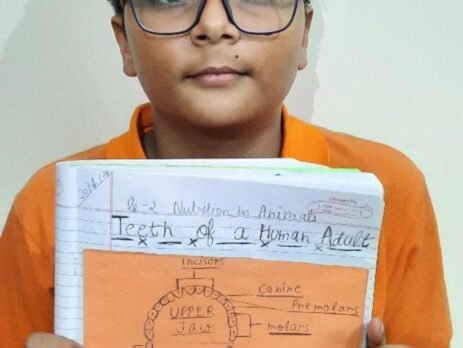 Nutrition in Animals
Teeth of a Human Adult
Incisors
Canine
Premolars
UPPER
Jaw
molars